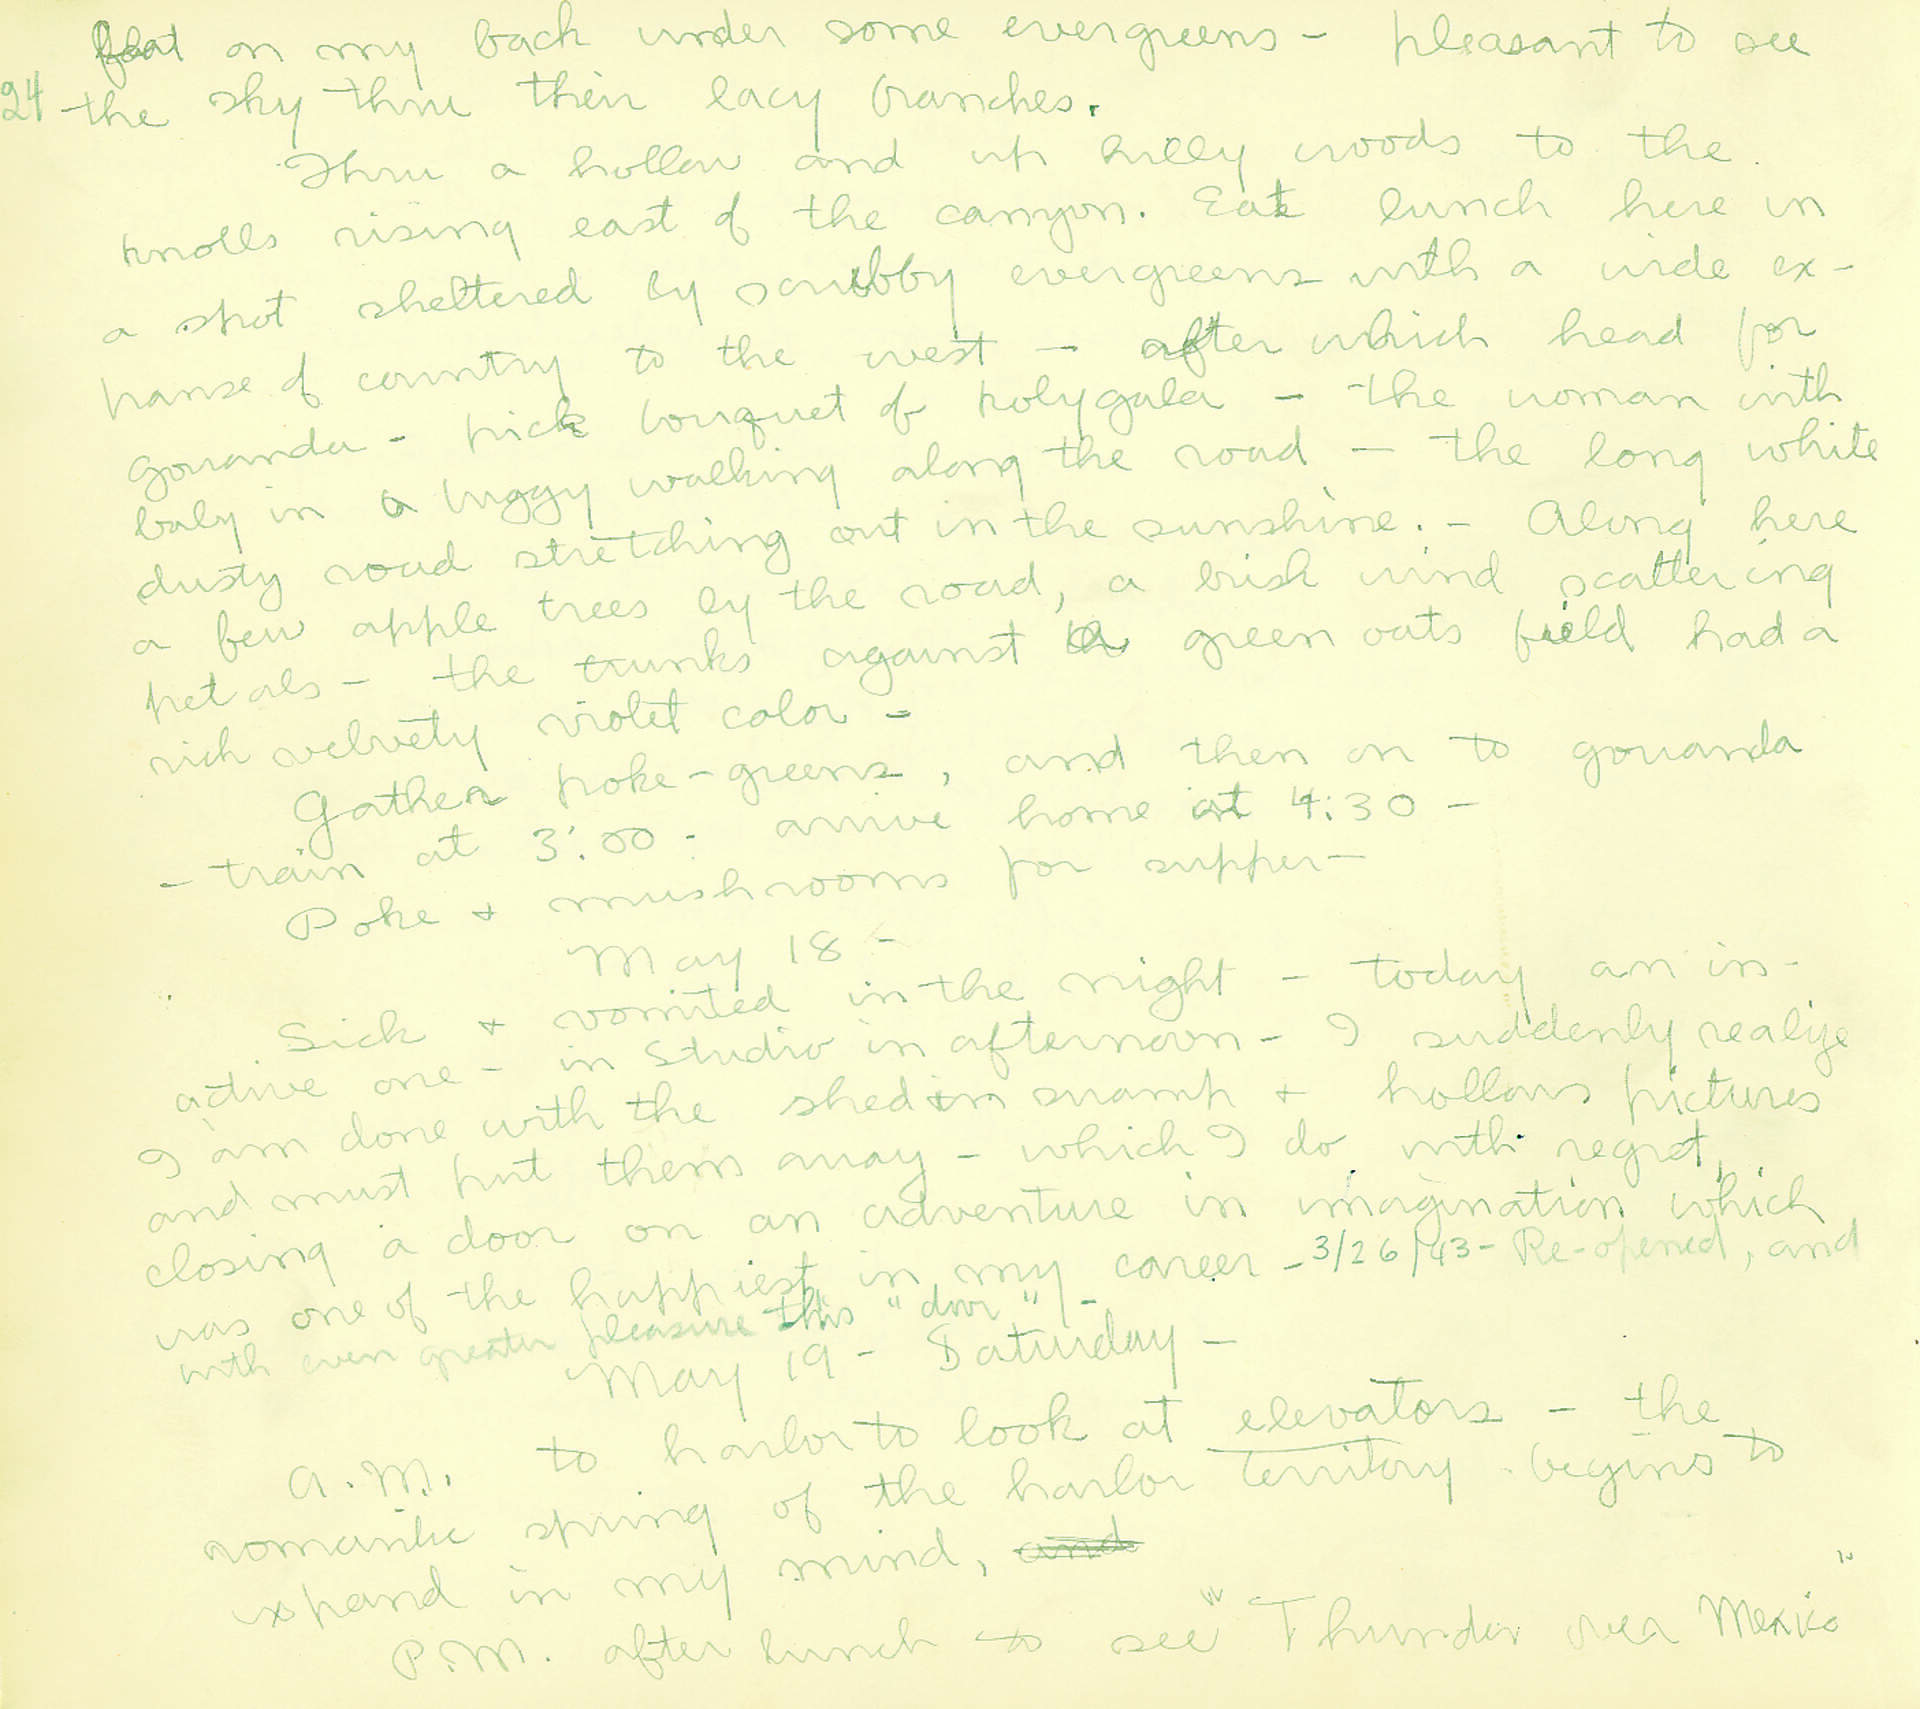 flat on my back under some evergreens – pleasant to see
24 the sky thru their lacy branches.
Thru a hollow and up hilly woods to the
knolls rising east of the canyon. Eat lunch here in
a spot sheltered by scrubby evergreens with a wide ex-
panse of country to the west – after which head for
Gowanda – pick bouquet of polygala – the woman with
baby in a buggy walking along the road – the long white
dusty road stretching out in the sunshine. – Along here
a few apple trees by the road, a brisk wind scattering
petals – the trunks against a green oats field had a
rich velvety violet color –
Gather poke-greens, and then on to Gowanda
– train at 3:00 – arrive home at 4:30 –
Poke + mushrooms for supper –
May 18 –
Sick + vomited in the night – today an in-
active one – in studio in afternoon – I suddenly realize
I am done with the shed in swamp + hollows pictures
and must put them away – which I do with regret,
closing a door on an adventure in imagination which
was one of the happiest in my career – 3/26/43 – Re-opened, and
with even greater pleasure this "door" –
May 19 – Saturday –
A.M. to harbor to look at elevators – the
romantic spring of the harbor territory begins to
expand in my mind, and
P.M. after lunch to see "Thunder over Mexico"